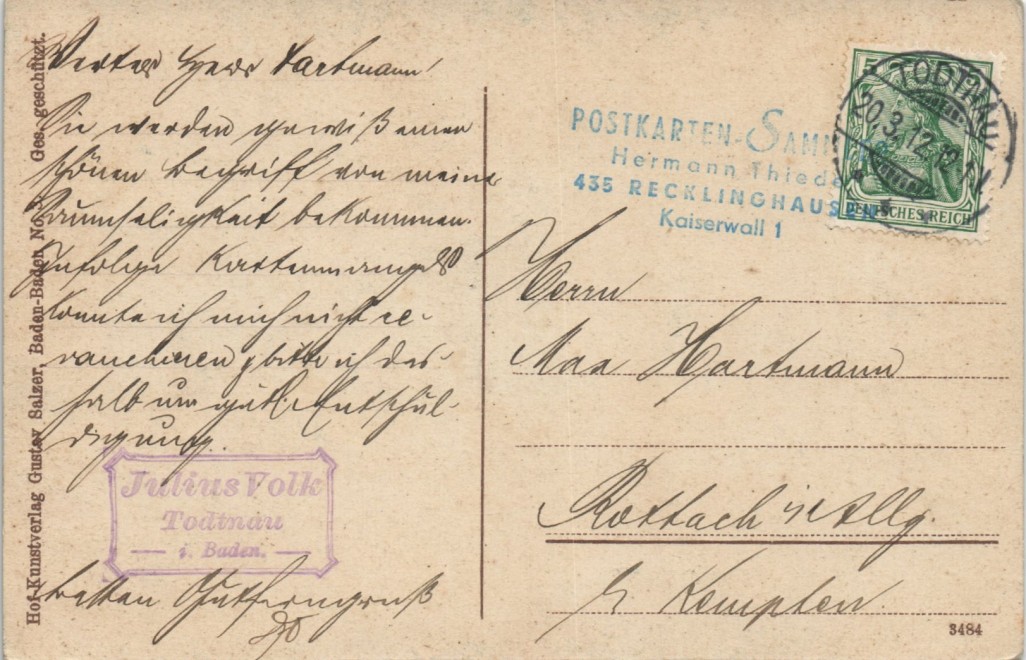 Werter Herr Hartmann!
Sie werden gewiß einen
schönen Begriff von meiner
Saumseligkeit bekommen.
Infolge Kartenmangels
konnte ich mich nicht re-
vanchieren, bitte ich des-
halb um gütl. Entschul-
digung.
Julius Volk
Todtnau
i. Baden.
besten Gutferngruß
Hof-Kunstverlag Gustav Salzer, Baden-Baden No. 3. Ges. geschützt.
POSTKARTEN-SAMM
Hermann Thiede
435 RECKLINGHAUSEN
Kaiserwall 1
5
TODTNAU
20.3.12.12-1N.
DEUTSCHES REICH
Herrn
Max Hartmann
Rottach i/Allg.
b/ Kempten.
3484